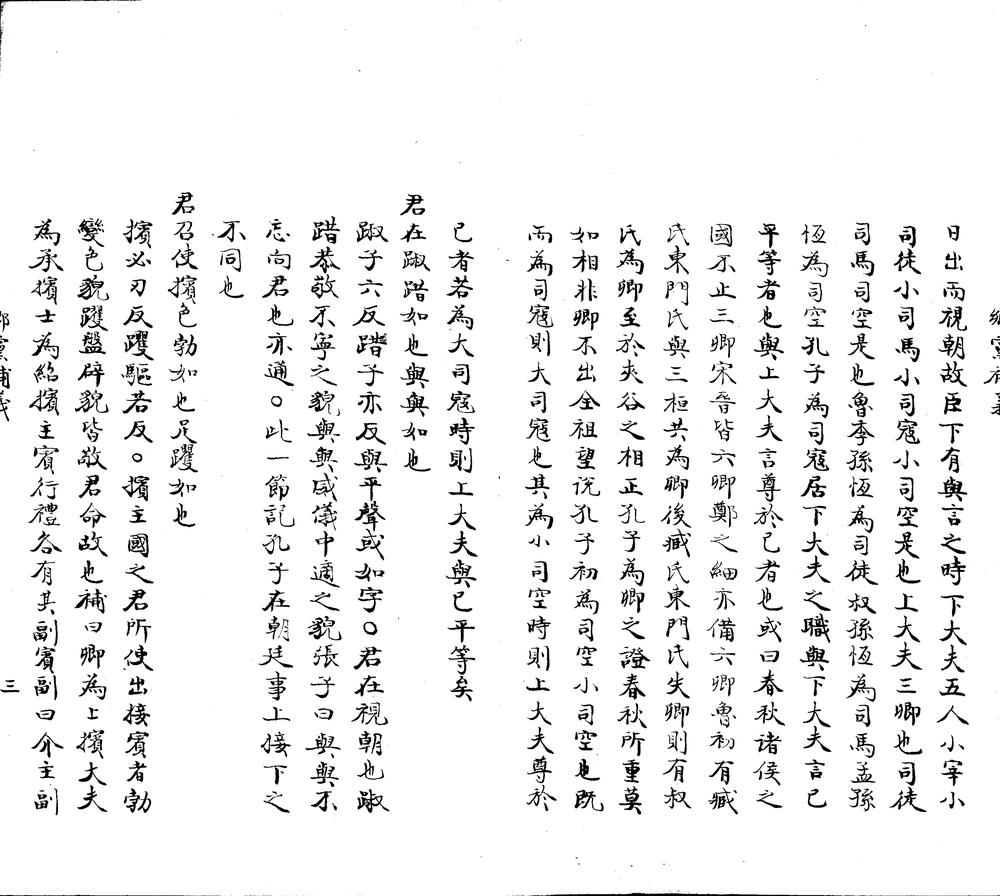 鄉黨補義
日出而視朝故臣下有與言之時下大夫五人小宰小
司徒小司馬小司寇小司空是也上大夫三卿也司徒
司馬司空是也魯季孫恆為司徒叔孫恆為司馬孟孫
恆為司空孔子為司寇居下大夫之職與下大夫言己
平等者也與上大夫言尊於己者也或曰春秋諸侯之
國不止三卿宋晉皆六卿鄭之細亦備六卿魯初有臧
氏東門氏與三桓共為卿後臧氏東門氏失卿則有叔
氏為卿至於夾谷之相正孔子為卿之證春秋所重莫
如相非卿不出全祖望說孔子初為司空小司空也既
而為司寇則大司寇也其為小司空時則上大夫尊於
己者若為大司寇時則上大夫與己平等矣
君在踧踖如也與與如也
踧子六反踖子亦反與平聲或如字○君在視朝也踧
踖恭敬不寧之貌與與威儀中適之貌張子曰與與不
忘向君也亦通○此一節記孔子在朝廷事上接下之
不同也
君召使擯色勃如也足躩如也
擯必刃反躩驅若反○擯主國之君所使出接賓者勃
變色貌躩盤辟貌皆敬君命故也補曰卿為上擯大夫
為承擯士為紹擯主賓行禮各有其副賓副曰介主副
鄉黨補義
三